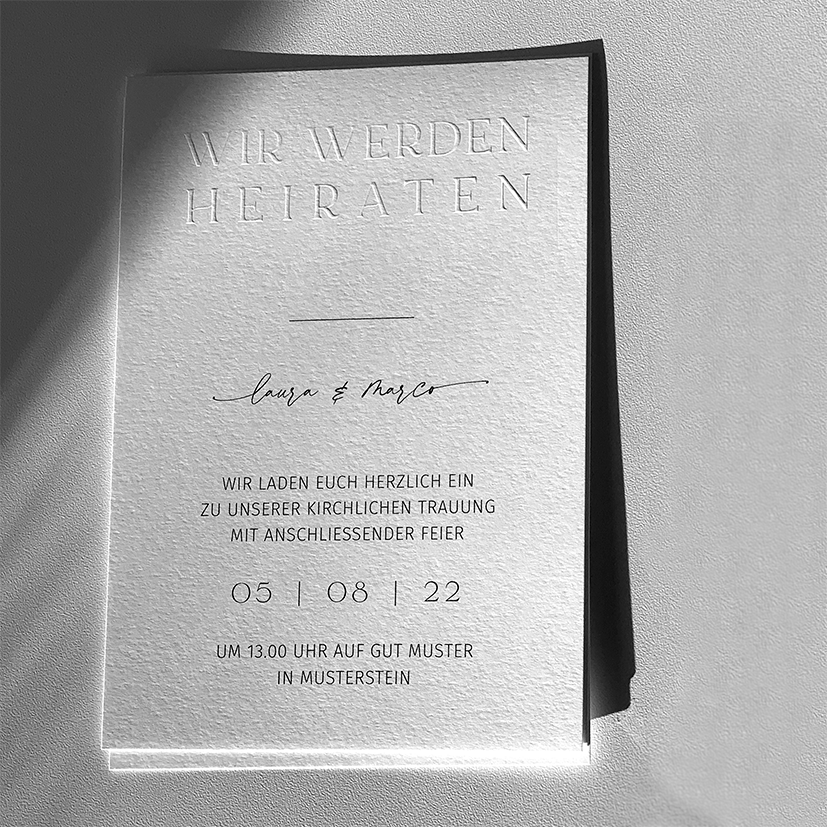 WIR WERDEN
HEIRATEN
laura & marco
WIR LADEN EUCH HERZLICH EIN
ZU UNSERER KIRCHLICHEN TRAUUNG
MIT ANSCHLIESSENDER FEIER
05 | 08 | 22
UM 13.00 UHR AUF GUT MUSTER
IN MUSTERSTEIN